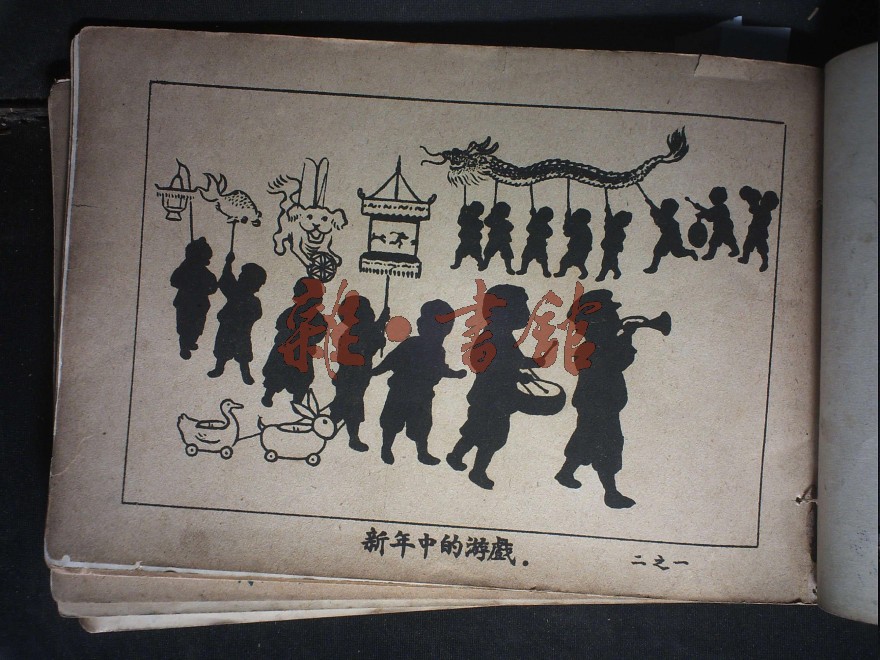 雜·書館
新年中的游戲.
二之一